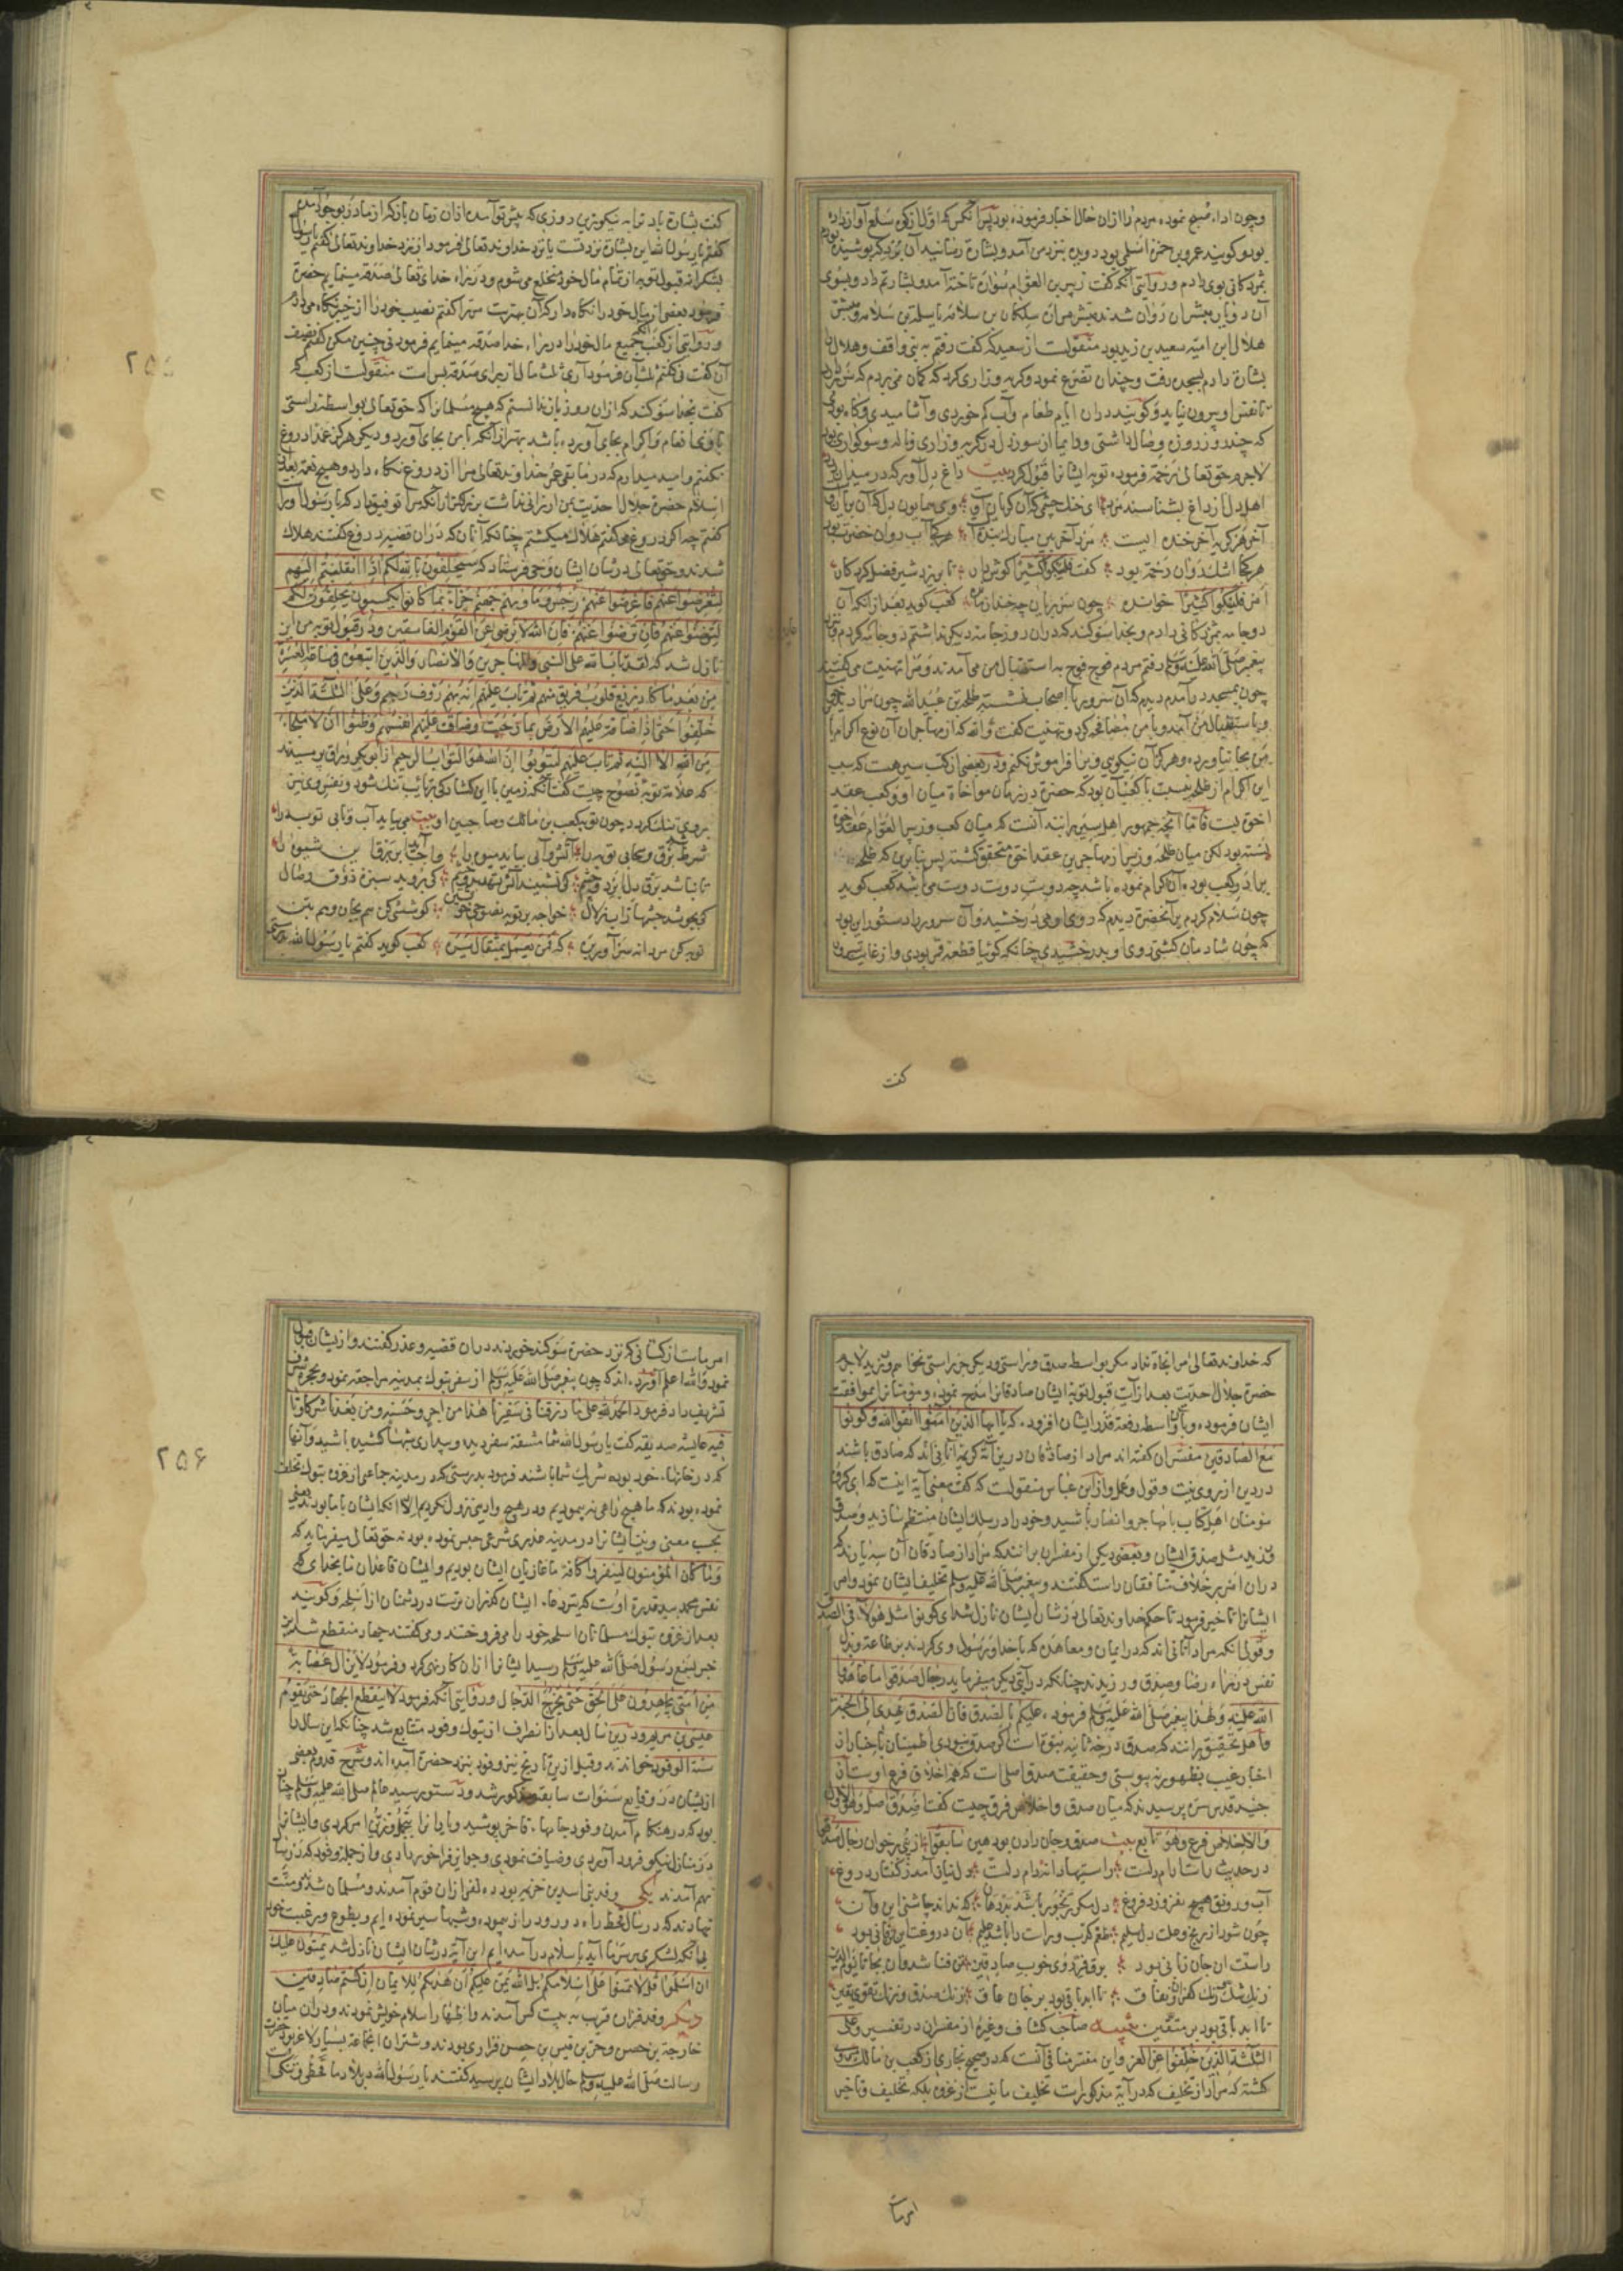 وچون اداء صبح نموده مردم را ازان حال اخبار فرموده بود پس آنکس که اول از کوه سلع آواز داده
بود و کویند عمرو بن حمزه اسلمی بود دویده بنزد من آمد و بشارة رسانید آن برد که پوشیده
بمژدکانی بوی دادم و در روایتی آنکه کفت زبیر بن العوام سواره تاخته آمد و بشارتم داد و بسوی
آن دو یار مبشران روان شدند مبشر مرارة سلکان بن سلامه یا سلمة بن سلامه و مبشر
هلال ابن امیه سعید بن زید بود منقولست از سعید که کفت رفتم به بنی واقف و هلال را
بشارة دادم بسجده رفت و چندان تضرع نمود و کریه و زاری کرد که کمان می بردم که سر بر ندارد
تا نفس او بیرون نیاید و کویند دران ایام طعام و آب کم خوردی و آشامیدی و کاه بودی
که چند روز روزه وصال داشتی و دایما از سوز دل در کریه و زاری و ناله و سوکواری بود
لاجرم حق تعالی رحمة فرموده توبه ایشانرا قبول کرد بیت داغ دل آور که در میدان درد
اهل دل از داغ بشناسند مرد ای خنک چشمی که آن کریان اوست وی همایون دل که آن بریان اوست
آخر هر کریه آخر خنده ایست مرد آخر بین مبارک بنده ایست هر کجا آب روان خضرت بود
هر کجا اشک روان رحمة بود کفت فلیبکوا کثیرا کوش دار تا بریزد شیر فضل کردکار
امر فلیبکوا کثیرا خوانده چون سر بریان چه خندان مانده کعب کوید بعد ازانکه آن
دو جامه بمژدکانی دادم و بخدا سوکند که دران روز جامه دیکر نداشتم دو جامه کردم و نزد
پیغمبر صلی الله علیه وسلم رفتم مردم فوج فوج به استقبال من می آمدند و مرا تهنیت می کفتند
چون بمسجد در آمدم دیدم که آن سرور با اصحاب نشسته طلحة بن عبید الله چون مرا دید
و باستقبال من آمد و با من مصافحه کرد و تهنیت کفت والله که از مهاجران آن نوع اکرام با
من بجا نیاورد و هرکز آن نیکویی ویرا فراموش نکنم و در بعضی از کتب سیر هست که سبب
این اکرام از طلحه نسبت با کعب آن بود که حضرة درینهان مواخاة میان او و کعب عقد
اخوة بست فاما آنچه جمهور اهل سیر برانند آنست که میان کعب و زبیر العوام عقد اخوة
بسته بود لکن میان طلحه و زبیر از مهاجرین عقد اخوة متحقق کشته پس بنابرین که طلحه
برادر کعب بود آن اکرام نموده باشد چه دوست دوست دوست می باشد کعب کوید
چون سلام کردم بر آنحضرة دیدم که روی او می درخشید و آن سرور را دستور این بود
که چون شادمان کشتی روی او بدرخشیدی چنانکه کوئیا قطعه قمر بودی و از غایت سرور
کفت
کفت بشارة باد ترا به نیکوترین روزی که پیش تو آمده ازان زمان باز که از مادر بوجود آمدی
کفتم یا رسول الله این بشارة نزد تست یا نزد خداوند تعالی فرمود از نزد خداوند تعالی کفتم یا رسول الله
بشکرانه قبول توبه از تمام مال خود منخلع می شوم و در راه خدای تعالی صدقه مینمایم حضرة
فرمود بعضی از مال خود را نکاه دار که آن بهترست مر ترا کفتم نصیب خود را از خیبر نکاه می دارم
و در روایتی از کعب آنکه جمیع مال خود را در راه خدا صدقه مینمایم فرمود نی چنین مکن کفتم نصف
آن کفت نی کفتم ثلث آن فرمود آری ثلث مال از برای صدقه بس است منقولست از کعب که
کفت بخدا سوکند که ازان روز باز ندانستم که هیچ مسلمانرا که حق تعالی بواسطه راستی
با وی انعام و اکرام بجای آورده باشد بهتر ازآنکه با من بجای آورد و دیکر هرکز عمدا دروغ
نکفتم و امید میدارم که در مابقی عمر خداوند تعالی مرا از دروغ نکاه دارد و هیچ نعمة بعد از
اسلام حضرة جلال احدیت بمن ارزانی نداشت بزرکتر ازانکه مرا توفیق داد که با رسول او راست
کفتم چه اکر دروغ می کفتم هلاک میکشتم چنانکه آنان که دران قضیه دروغ کفتند هلاک
شدند و حق تعالی در شان ایشان وحی فرستاد که سیحلفون بالله لکم اذا انقلبتم الیهم
لتعرضوا عنهم فاعرضوا عنهم انهم رجس و ماویهم جهنم جزاء بما کانوا یکسبون یحلفون لکم
لترضوا عنهم فان ترضوا عنهم فان الله لا یرضی عن القوم الفاسقین و در قبول توبه من این
نازل شد که لقد تاب الله علی النبی والمهاجرین والانصار والذین اتبعوه فی ساعة العسرة
من بعد ما کاد یزیغ قلوب فریق منهم ثم تاب علیهم انه بهم رؤف رحیم وعلی الثلثة الذین
خلفوا حتی اذا ضاقت علیهم الارض بما رحبت وضاقت علیهم انفسهم وظنوا ان لا ملجاء
من الله الا الیه ثم تاب علیهم لیتوبوا ان الله هو التواب الرحیم از ابو بکر وراق پرسیدند
که علامة توبه نصوح چیست کفت آنکه زمین با این کشادکی بر تایب تنک شود و نفس وی نیز
بروی تنک کردد چون توبه کعب بن مالک و صاحبین او بیت می بباید آب و تابی توبه را
شرط شد برق و سحابی توبه را آتش و آبی بباید میوه را واجب آید ابر و برق این شیوه را
تا نباشد برق دل و ابر دو چشم کی نشیند آتش تهدید و خشم کی بروید سبزه ذوق وصال
کی بجوشد چشمها ز آب زلال خواجه بر توبه نصوحی خوش بتن کوششی کن هم بجان و هم بتن
توبه کن مردانه سر آور بره که فمن یعمل بمثقال یره کعب کوید کفتم یا رسول الله بدرستی
۲۵۵
که خداوند تعالی مرا نجاة نداد مکر بواسطه صدق و راستی و دیکر جز راستی نخواهم ورزید لاجرم
حضرة جلال احدیت بعد از آیت قبول توبه ایشان صادقانرا مدح نموده و مؤمنانرا بموافقت
ایشان فرموده و باین واسطه رفعة قدر ایشان افزود که یا ایها الذین آمنوا اتقوا الله وکونوا
مع الصادقین مفسران کفته اند مراد از صادقان درین آیه کریمه آنانی اند که صادق باشند
در دین از روی نیت و قول و عمل و از ابن عباس منقولست که کفت معنی آیه اینست که ای کروه
مومنان اهل کتاب با مهاجر و انصار باشید و خود را در سلک ایشان منتظم سازید و صدق
ورزید مثل صدق ایشان و بعضی دیکر از مفسران برانند که مراد از صادقان آن سه یارند که
دران امر بر خلاف منافقان راست کفتند و پیغمبر صلی الله علیه وسلم تخلیف ایشان نمود و امر
ایشانرا تاخیر فرمود تا حکم خداوند تعالی در شان ایشان نازل شد ای کونوا مثل هؤلاء فی الصدق
و قولی انکه مراد آنانی اند که در ایمان و معاهده که با خدا و رسول وی کردند بر طاعة و بذل
نفس در راه رضا و صدق ورزیدند چنانکه در آیتی دیکر میفرماید رجال صدقوا ما عاهدوا
الله علیه ولهذا پیغمبر صلی الله علیه وسلم فرموده علیکم بالصدق فان الصدق یهدی الی الجنة
و اهل تحقیق برانند که صدق درجه ثانیه نبوة است اکر صدق نبودی اطمینان باخبار از
اخبار غیب بظهور نپیوستی و حقیقت صدق اصلی است که همه اخلاق فرع اوست از
جنید قدس سره پرسیدند که میان صدق و اخلاص فرق چیست کفت الصدق اصل وهو الاول
والاخلاص فرع وهو تابع بیت صدق جان دادن بود هین سابقوا از نبی بر خوان رجال صدقوا
در حدیث راست آرام دلست راستیها دانه دام دلست دل نیارامد ز کفتار دروغ
آب و روغن هیچ نفروزد فروغ دل مکر رنجور باشد بد دهان که نداند چاشنی این و آن
چون شود از رنج و علت دل سلیم طعم کذب و راست را باشد علیم آن دروغت این تن فانی بود
راست آن جان ربانی بود
زنک شک زنک کفران و نفاق تا ابد باقی بود بر جان عاق رنک صدق و رنک تقوی یقین
تا ابد باقی بود بر متقین تنبیه صاحب کشاف و غیره از مفسران در تفسیر وعلی
الثلثة الذین خلفوا عن الغزو و این مفسر منافی آنست که در صحیح بخاری از کعب بن مالک مروی
کشته که مراد از تخلیف که در آیة مذکوراست تخلیف ما نیست از غزوه بلکه تخلیف و تاخیر
امر ماست
امر ماست از کسانی که نزد حضرة سوکند خوردند دران قضیه و عذر کفتند و از یشان قبول
نمود والله اعلم آورده اند که چون پیغمبر صلی الله علیه وسلم از سفر تبوک بمدینه مراجعة نمود و بحجره
تشریف داد فرمود الحمد لله علی ما رزقنا فی سفرنا هذا من اجر وحسنة ومن بعدنا شرکاؤنا
فیه عایشه صدیقه کفت یا رسول الله شما مشقة سفر دیده و بیداری شبها کشیده باشید و آنها
که در خانهاء خود بوده شریک شما باشند فرمود بدرستی که در مدینه جماعتی از غزوه تبوک تخلف
نموده بودند که ما هیچ راهی نپیمودیم و در هیچ وادیی نزول نکردیم الا انکه ایشان با ما بودند یعنی
بحسب معنی و نیت ایشانرا در مدینه عذری شرعی حبس نموده بود نه حق تعالی میفرماید که
وما کان المؤمنون لینفروا کافة ما غازیان ایشان بودیم و ایشان قاعدان ما بخدای که
نفس محمد بید قدرة اوست که تیر دعاء ایشان کذران ترست در دشمنان از اسلحه و کویند
بعد از غزوه تبوک مسلمانان اسلحه خود را می فروختند و می کفتند جهاد منقطع شد این
خبر بسمع رسول صلی الله علیه وسلم رسید ایشانرا ازان کار نهی کرد و فرمود لا یزال عصابة
من امتی یجاهدون علی الحق حتی یخرج الدجال و در روایتی آنکه فرمود لا ینقطع الجهاد حتی یقوم
عیسی بن مریم و درین سال بعد از انصراف از تبوک وفود متتابع شد چنانکه این سال را
سنة الوفود خواندند و قبل ازین تاریخ نیز وفود نزد حضرة آمده اند و شرح قدوم بعضی
ازیشان در وقایع سنوات سابقه مذکور شد و دستور سید عالم صلی الله علیه وسلم چنان
بود که در هنکام آمدن وفود جامهاء فاخر پوشید و یارانرا بتجمل و تزین امر کردی و ایشانرا
در منازل نیکو فرود آوردی و ضیافت نمودی و جوایز فراخور دادی و از جمله وفود که در سال
نهم آمدند یکی وفد بنی اسد بن خزیمه بود ده نفر ازان قوم آمدند و مسلمان شدند و منت
نهادند که در سال قحط راه دور و دراز پیموده و شبها سیر نموده ایم و بطوع و رغبت خود
بی آنکه لشکری بر سر ما آید باسلام در آمده ایم این آیة در شان ایشان نازل شد یمنون علیک
ان اسلموا قل لا تمنوا علی اسلامکم بل الله یمن علیکم ان هدیکم للایمان ان کنتم صادقین
دیکر وفد فزاره قریب به بیست کس آمدند و اظهار اسلام خویش نمودند و دران میان
خارجة بن حصن و حر بن قیس بن حصن فزاری بودند و شتران انجماعة بسیار لاغر بود حضرت
رسالت صلی الله علیه وسلم حال بلاد ایشان پرسید کفتند یا رسول الله در بلاد ما قحطی و تنکی است
۲۵۶